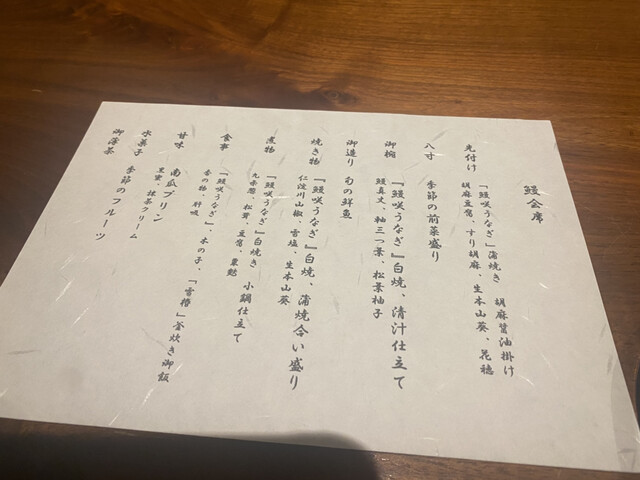 鰻会席
先付け 『鰻咲うなぎ』蒲焼き 胡麻醤油掛け
胡麻豆腐、すり胡麻、生本山葵、花穂
八寸 季節の前菜盛り
御椀 『鰻咲うなぎ』白焼、清汁仕立て
鰻真丈、軸三つ葉、松葉柚子
御造り 旬の鮮魚
焼き物 『鰻咲うなぎ』白焼、蒲焼合い盛り
仁淀川山椒、雪塩、生本山葵
煮物 『鰻咲うなぎ』白焼き 小鍋仕立て
九条葱、松茸、豆腐、粟麩
食事 『鰻咲うなぎ』、木の子、「雪椿」釜炊き御飯
香の物、肝吸
甘味 南瓜プリン
黒蜜、抹茶クリーム
水菓子 季節のフルーツ
御薄茶